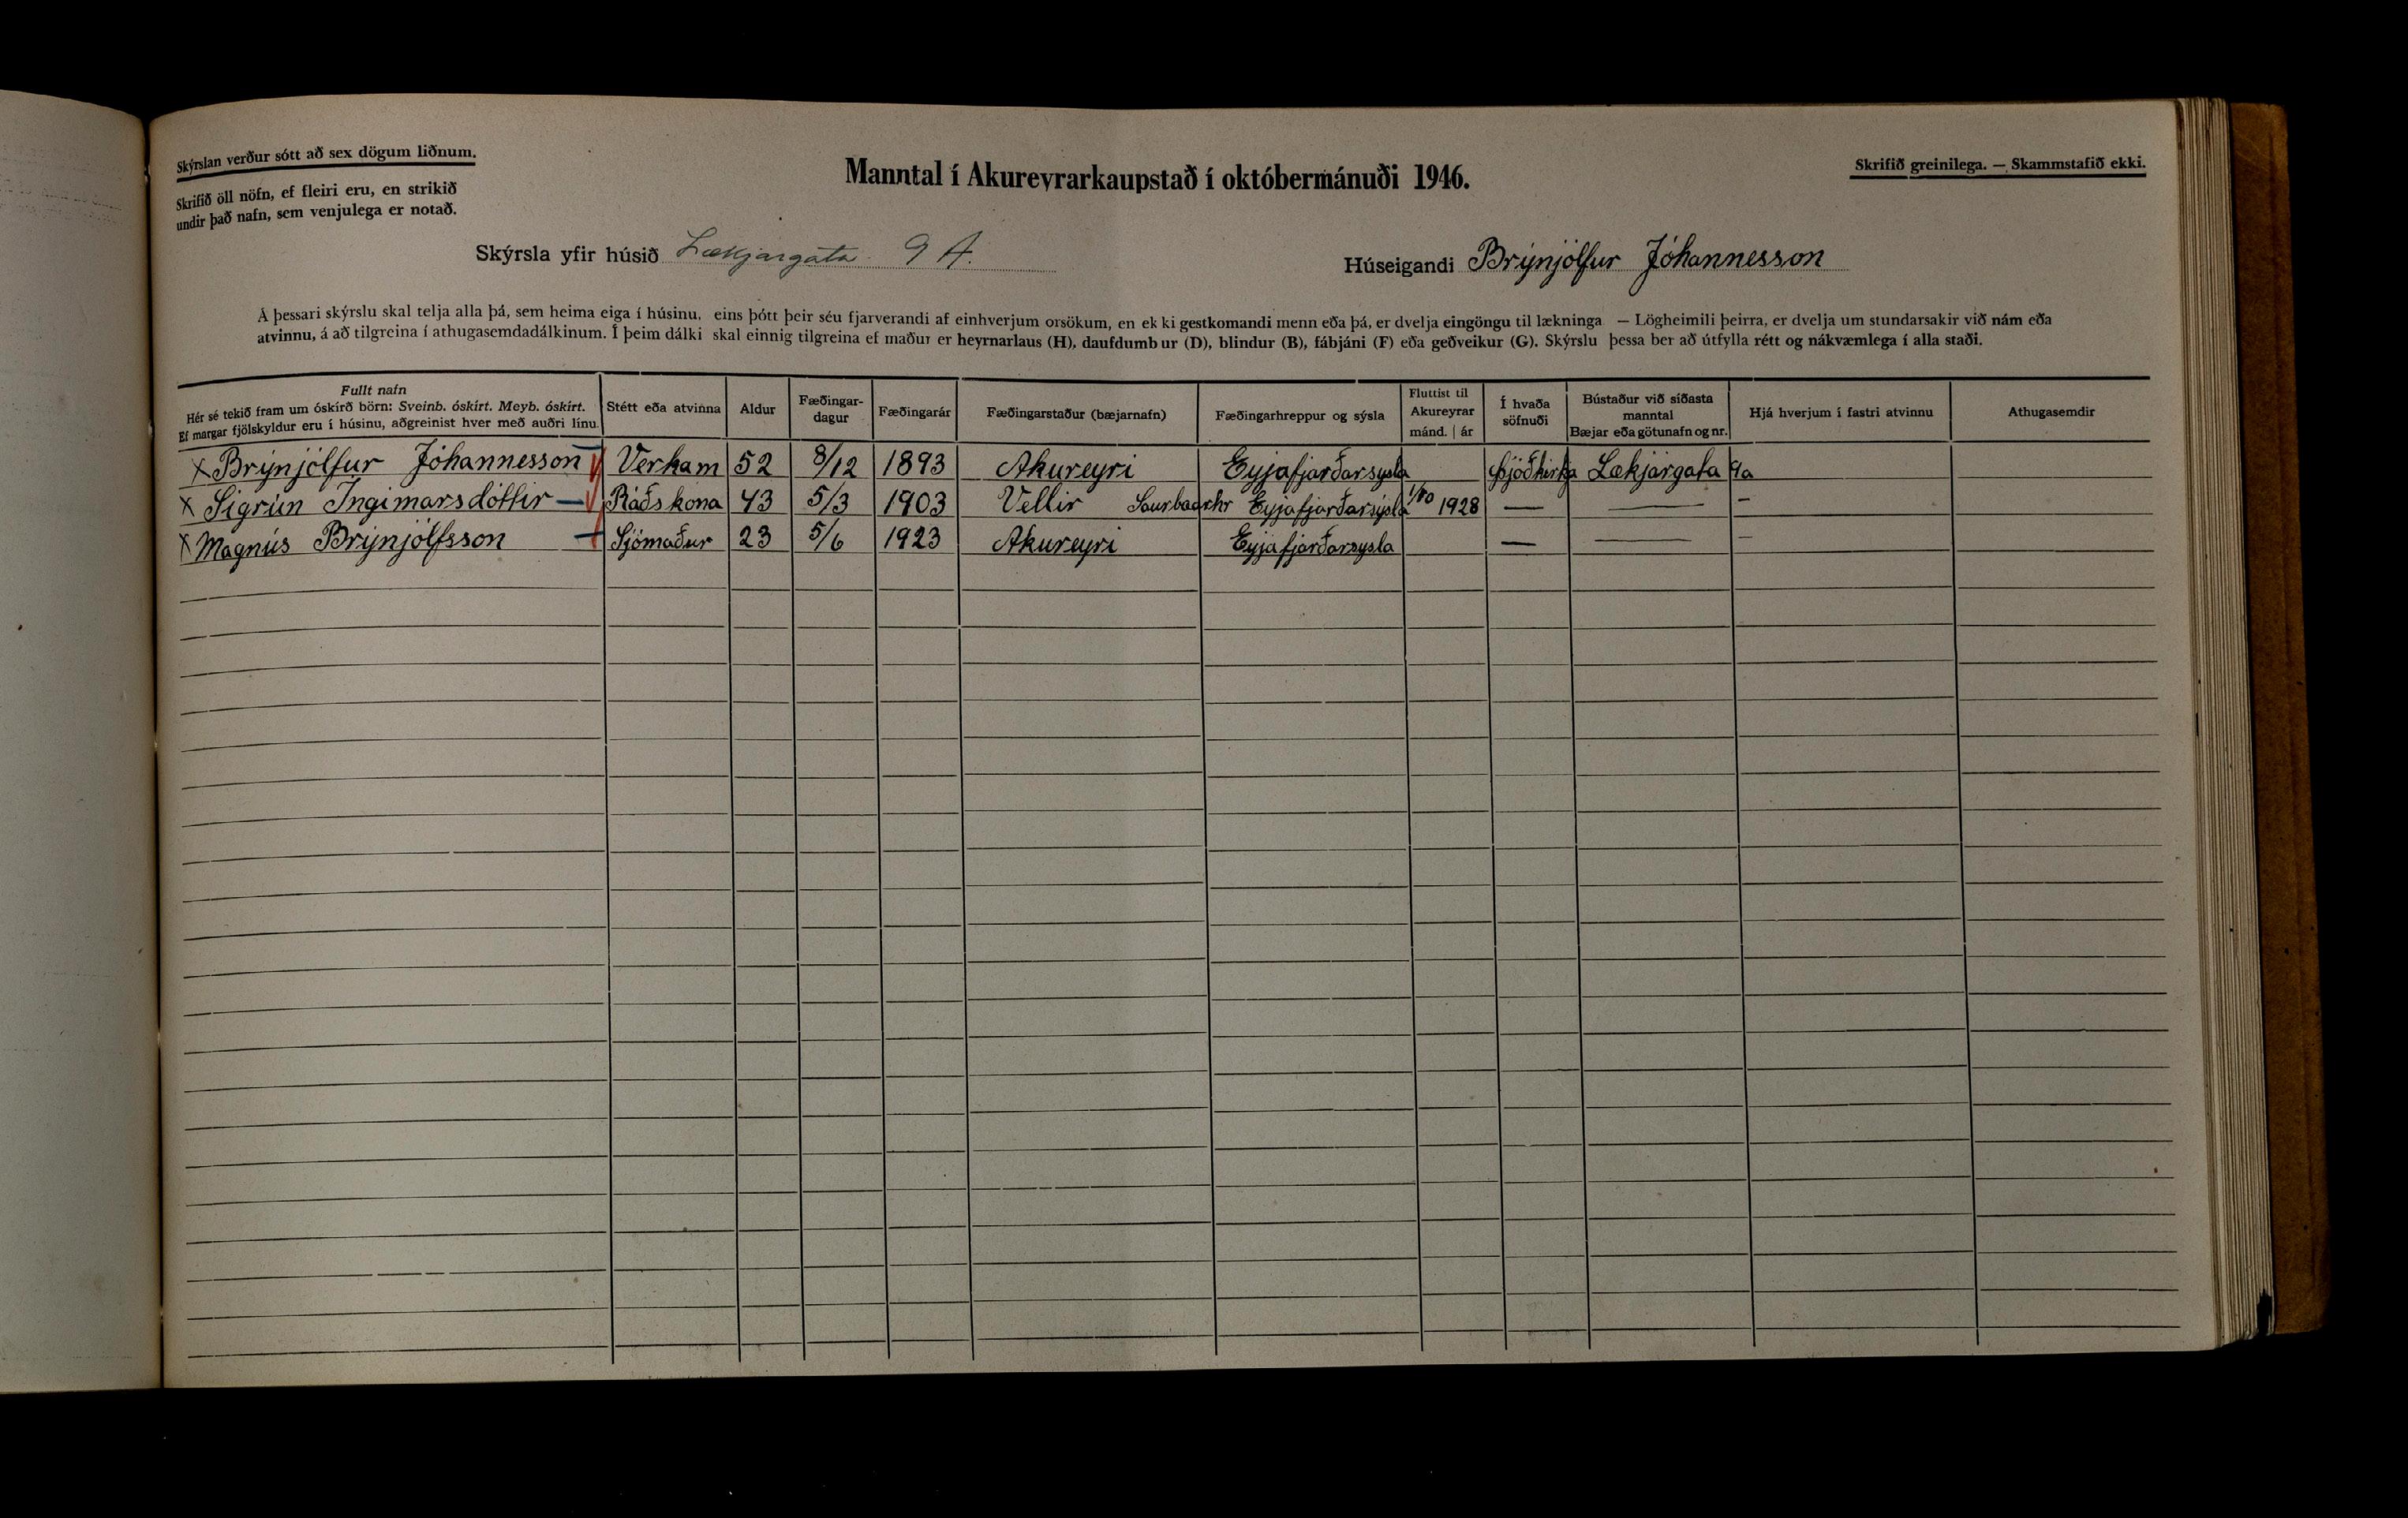 Skýrslan verður sótt að sex dögum liðnum.
Skrifið öll nöfn, ef fleiri eru, en strikið
undir það nafn, sem venjulega er notað.
Manntal í Akureyrarkaupstað í októbermánuði 1946.
Skrifið greinilega. — Skammstafið ekki.
Skýrsla yfir húsið Lækjargata 9 A.
Húseigandi Brýnjólfur Jóhannesson
Á þessari skýrslu skal telja alla þá, sem heima eiga í húsinu, eins þótt þeir séu fjarverandi af einhverjum orsökum, en ekki gestkomandi menn eða þá, er dvelja eingöngu til lækninga — Lögheimili þeirra, er dvelja um stundarsakir við nám eða
atvinnu, á að tilgreina í athugasemdadálkinum. Í þeim dálki skal einnig tilgreina ef maður er heyrnarlaus (H), daufdumbur (D), blindur (B), fábjáni (F) eða geðveikur (G). Skýrslu þessa ber að útfylla rétt og nákvæmlega í alla staði.
Fullt nafn
Hér sé tekið fram um óskírð börn: Sveinb. óskírt. Meyb. óskírt.
Ef margar fjölskyldur eru í húsinu, aðgreinist hver með auðri línu.
Stétt eða atvinna
Aldur
Fæðingar-
dagur
Fæðingarár
Fæðingarstaður (bæjarnafn)
Fæðingarhreppur og sýsla
Fluttist til
Akureyrar
mánd. | ár
Í hvaða
söfnuði
Bústaður við síðasta
manntal
Bæjar eða götunafn og nr.
Hjá hverjum í fastri atvinnu
Athugasemdir
x Brýnjólfur Jóhannesson Verkam 52 8/12 1893 Akureyri Eyjafjarðarsysla Þjóðkirkja Lækjargata 9a
x Sigrún Ingimarsdóttir — Ráðskona 43 5/3 1903 Vellir Saurbæarhr Eyjafjarðarsýsla 1/10 1928 — — –
x Magnús Brýnjólfsson Sjómaður 23 5/6 1923 Akureyri Eyjafjarðarsysla — — –